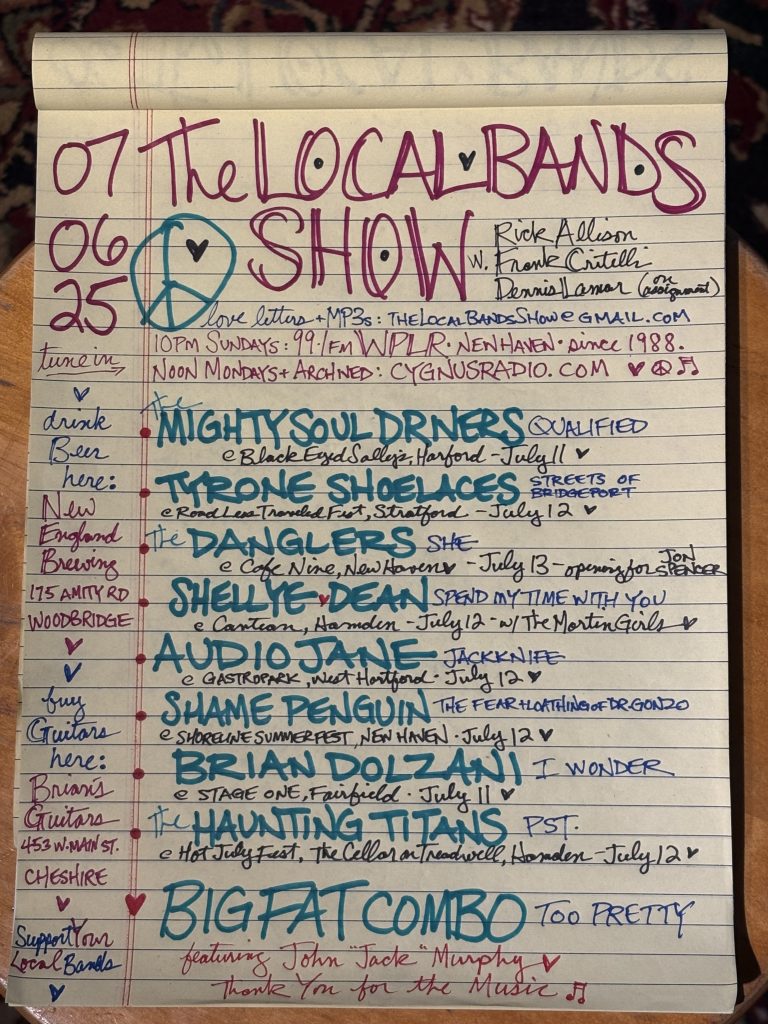 07 The LOCAL BANDS
06 SHOW w. Rick Allison
Frank Critelli
25 Dennis Lamar (on assignment)
love letters + MP3s: THELOCALBANDSSHOW@GMAIL.COM
10PM SUNDAYS: 99.1FM WPLR · NEW HAVEN · since 1988.
NOON MONDAYS + ARCHIVED: CYGNUSRADIO.COM
tune in
drink
Beer
here:
New
England
Brewing
175 AMITY RD
WOODBRIDGE
buy
Guitars
here:
Brian's
Guitars
453 W. MAIN ST.
CHESHIRE
Support Your
Local Bands
the MIGHTY SOUL DRIVERS QUALIFIED
@ Black Eyed Sally's, Harford - July 11
TYRONE SHOELACES STREETS OF BRIDGEPORT
@ Road Less Traveled Fest, Stratford - July 12
the DANGLERS SHE
@ Cafe Nine, New Haven - July 13 - opening for JON SPENCER
SHELLYE DEAN SPEND MY TIME WITH YOU
@ Cantean, Hamden - July 12 - w/ The Morten Girls
AUDIO JANE JACKKNIFE
@ GASTROPARK, West Hartford · July 12
SHAME PENGUIN THE FEAR + LOATHING OF DR. GONZO
@ SHORELINE SUMMERFEST, NEW HAVEN · July 12
BRIAN DOLZANI I WONDER
@ STAGE ONE, Fairfield · July 11
the HAUNTING TITANS PST.
@ Hot July Fest, The Cellar on Treadwell, Hamden - July 12
BIG FAT COMBO TOO PRETTY
featuring John "Jack" Murphy
Thank You for the Music